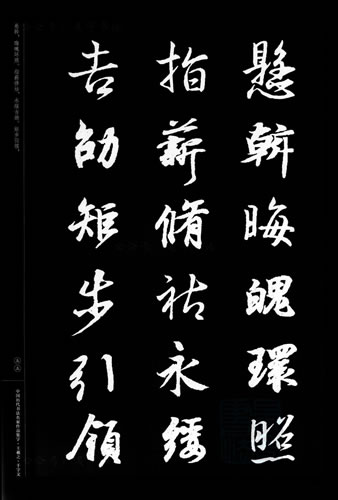 懸斡晦魄環照
指薪脩祜永綏
吉劭矩步引領